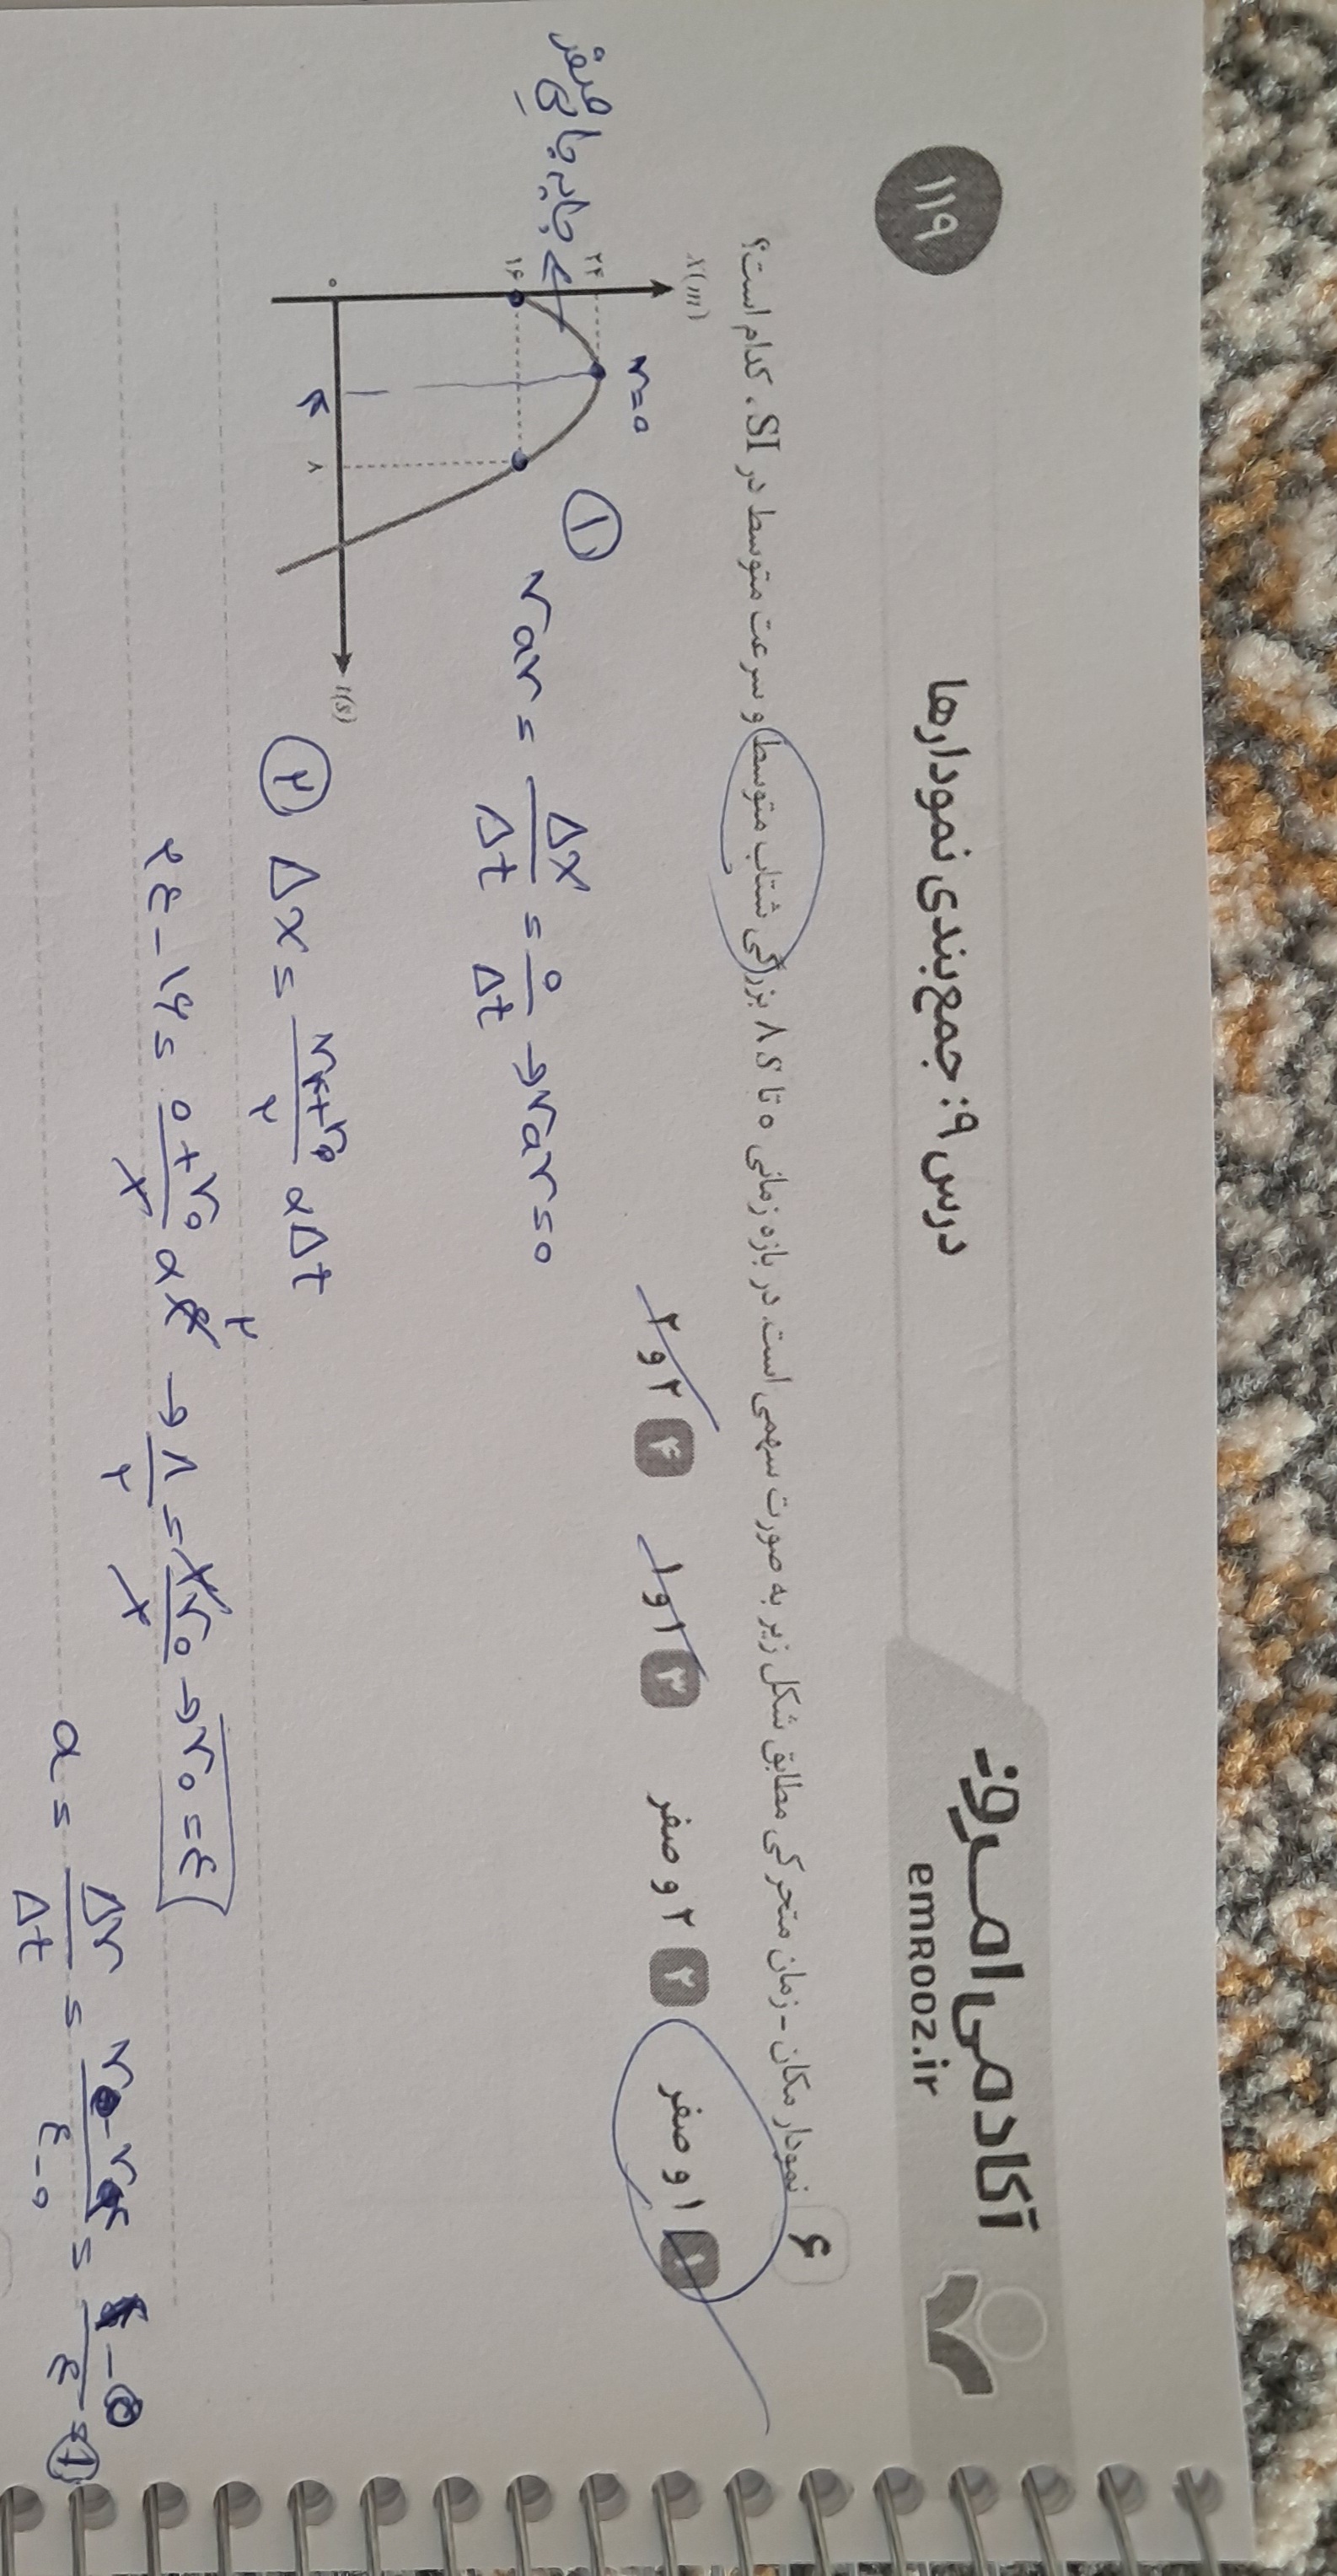 آکادمی امروز
emROOz.ir
درس ۹: جمع‌بندی نمودارها
۱۱۹
۶ نمودار مکان - زمان متحرکی مطابق شکل زیر به صورت سهمی است. در بازه زمانی ۰ تا ۸s بزرگی شتاب متوسط و سرعت متوسط در SI، کدام است؟
۱ ۱ و صفر ۲ ۲ و صفر ۳ ۱ و ۱ ۴ ۲ و ۲
x(m)
v=0
۲۴
۱۶
جابه جایی صفر
۰
۴
۸
t(s)
① vav = Δx/Δt = 0/Δt → vav=0
② Δx = (v۴+v0)/۲ × Δt
۲۴-۱۶ = (0+v0)/۲ × ۴ ۲ → ۸/۲ = ۲v0/۲ → v0=۴
a = Δv/Δt =
۴-0
۴